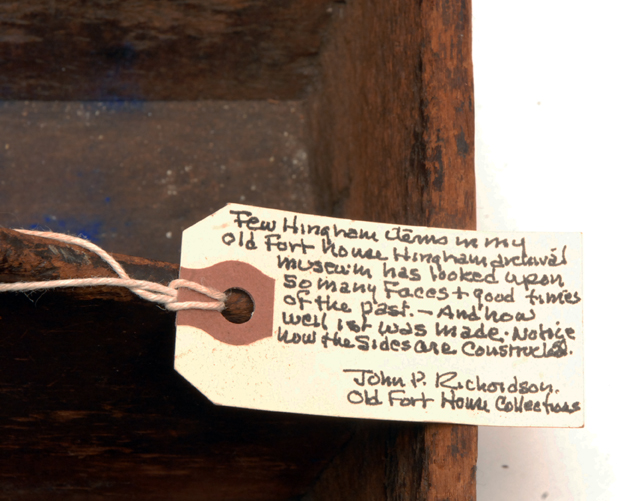 Few Hingham items in my
Old Fort House Hingham archival
museum has looked upon
so many Faces + good times
of the past. — And how
well it was made. Notice
how the sides are constructed.
John P. Richardson.
Old Fort House Collections